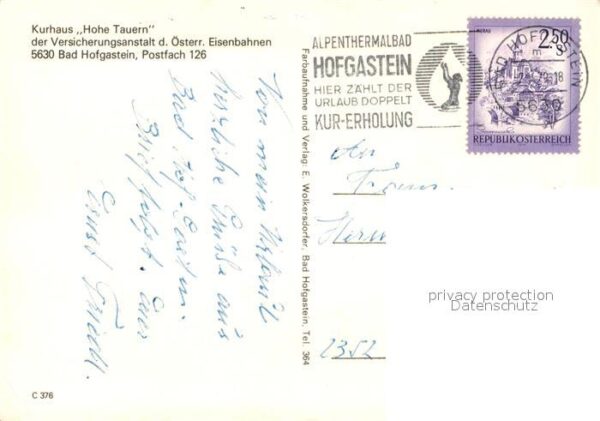 Kurhaus „Hohe Tauern“
der Versicherungsanstalt d. Österr. Eisenbahnen
5630 Bad Hofgastein, Postfach 126
ALPENTHERMALBAD
HOFGASTEIN
HIER ZÄHLT DER
URLAUB DOPPELT
KUR-ERHOLUNG
BAD HOFGASTEIN
5630
2.50
S
MURAU
REPUBLIK ÖSTERREICH
Von mein Urlaub
herzliche Grüße aus
Bad Hof-Gastein.
Brief folgt. Euer
Ernst
Farbaufnahme und Verlag: E. Wolkersdorfer, Bad Hofgastein, Tel. 364
An
Herrn
2352
privacy protection
Datenschutz
C 376